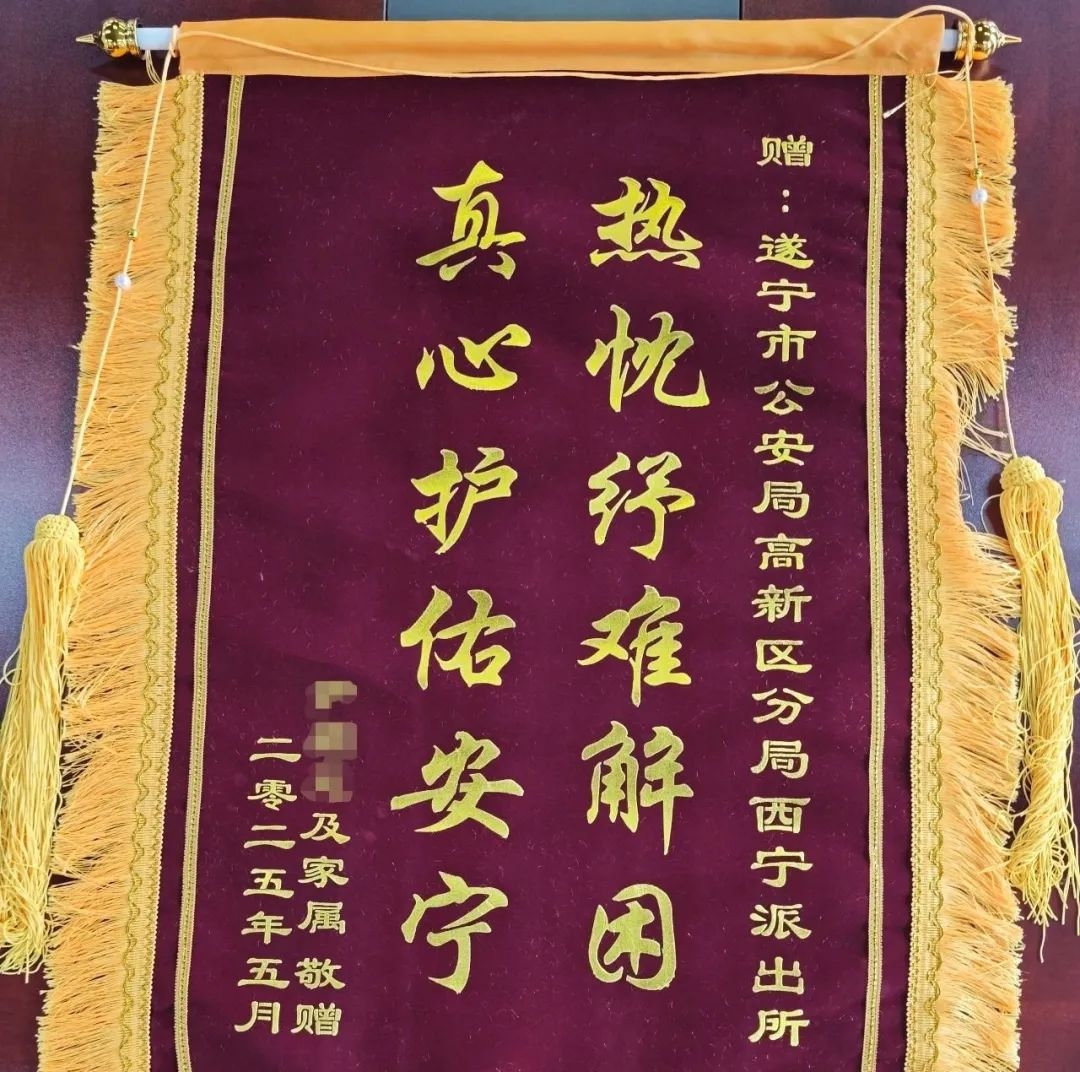 赠：遂宁市公安局高新区分局西宁派出所
热忱纾难解困
真心护佑安宁
及家属敬赠
二零二五年五月